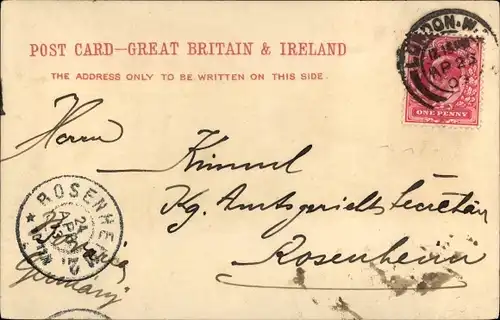 POST CARD—GREAT BRITAIN & IRELAND
THE ADDRESS ONLY TO BE WRITTEN ON THIS SIDE.
LONDON. W.
AP 23
ONE PENNY
Herrn
Kimmel
Kg. Amtsgerichts Secretär
Rosenheim
Germany
ROSENHEIM
24
APR